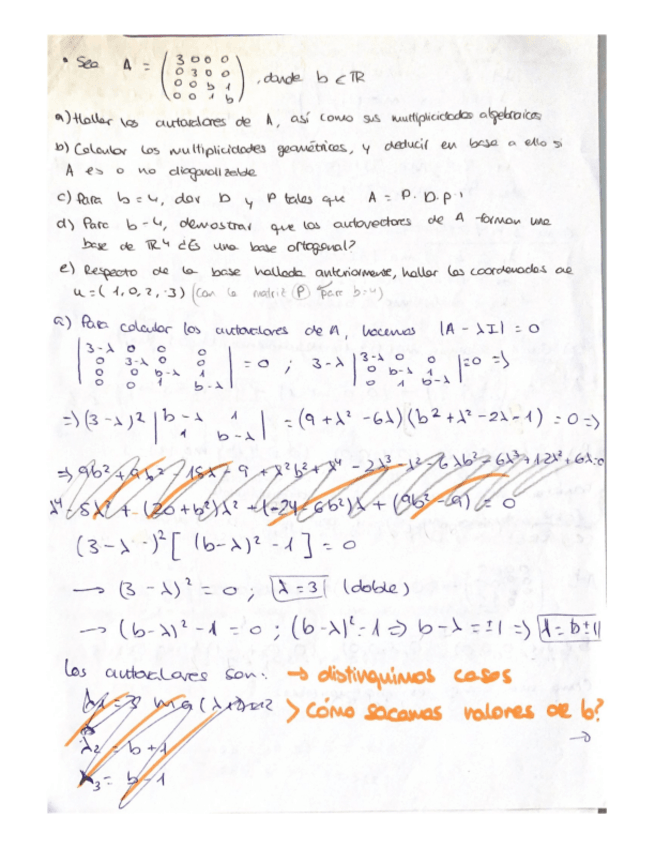 • Sea A = (3 0 0 0
0 3 0 0
0 0 b 1
0 0 1 b), donde b ∈ ℝ
a) Hallar los autovalores de A, así como sus multiplicidades algebraicas
b) Calcular las multiplicidades geométricas, y deducir en base a ello si
A es o no diagonalizable
c) Para b=4, dar D y P tales que A = P. D. P⁻¹
d) Para b=4, demostrar que los autovectores de A forman una
base de ℝ4 ¿ES una base ortogonal?
e) Respecto de la base hallada anteriormente, hallar las coordenadas de
u=(1,0,2,-3) (con la matriz P para b=4)
a) Para calcular los autovalores de A, hacemos |A - λI| = 0
|3-λ 0 0 0
0 3-λ 0 0
0 0 b-λ 1
0 0 1 b-λ| = 0 ; 3-λ |3-λ 0 0
0 b-λ 1
0 1 b-λ| =0 =>
=> (3-λ)² |b-λ 1
1 b-λ| = (9+λ²-6λ)(b²+λ²-2λ-1) = 0 =>
(3-λ)² [(b-λ)² - 1] = 0
→ (3-λ)² = 0 ; λ=3 (doble)
→ (b-λ)² - 1 = 0 ; (b-λ)² = 1 => b-λ = ±1 => λ = b±1
Los autovalores son: → distinguimos casos
> cómo sacamos valores de b?
→
λ2 = b+1
λ3 = b-1